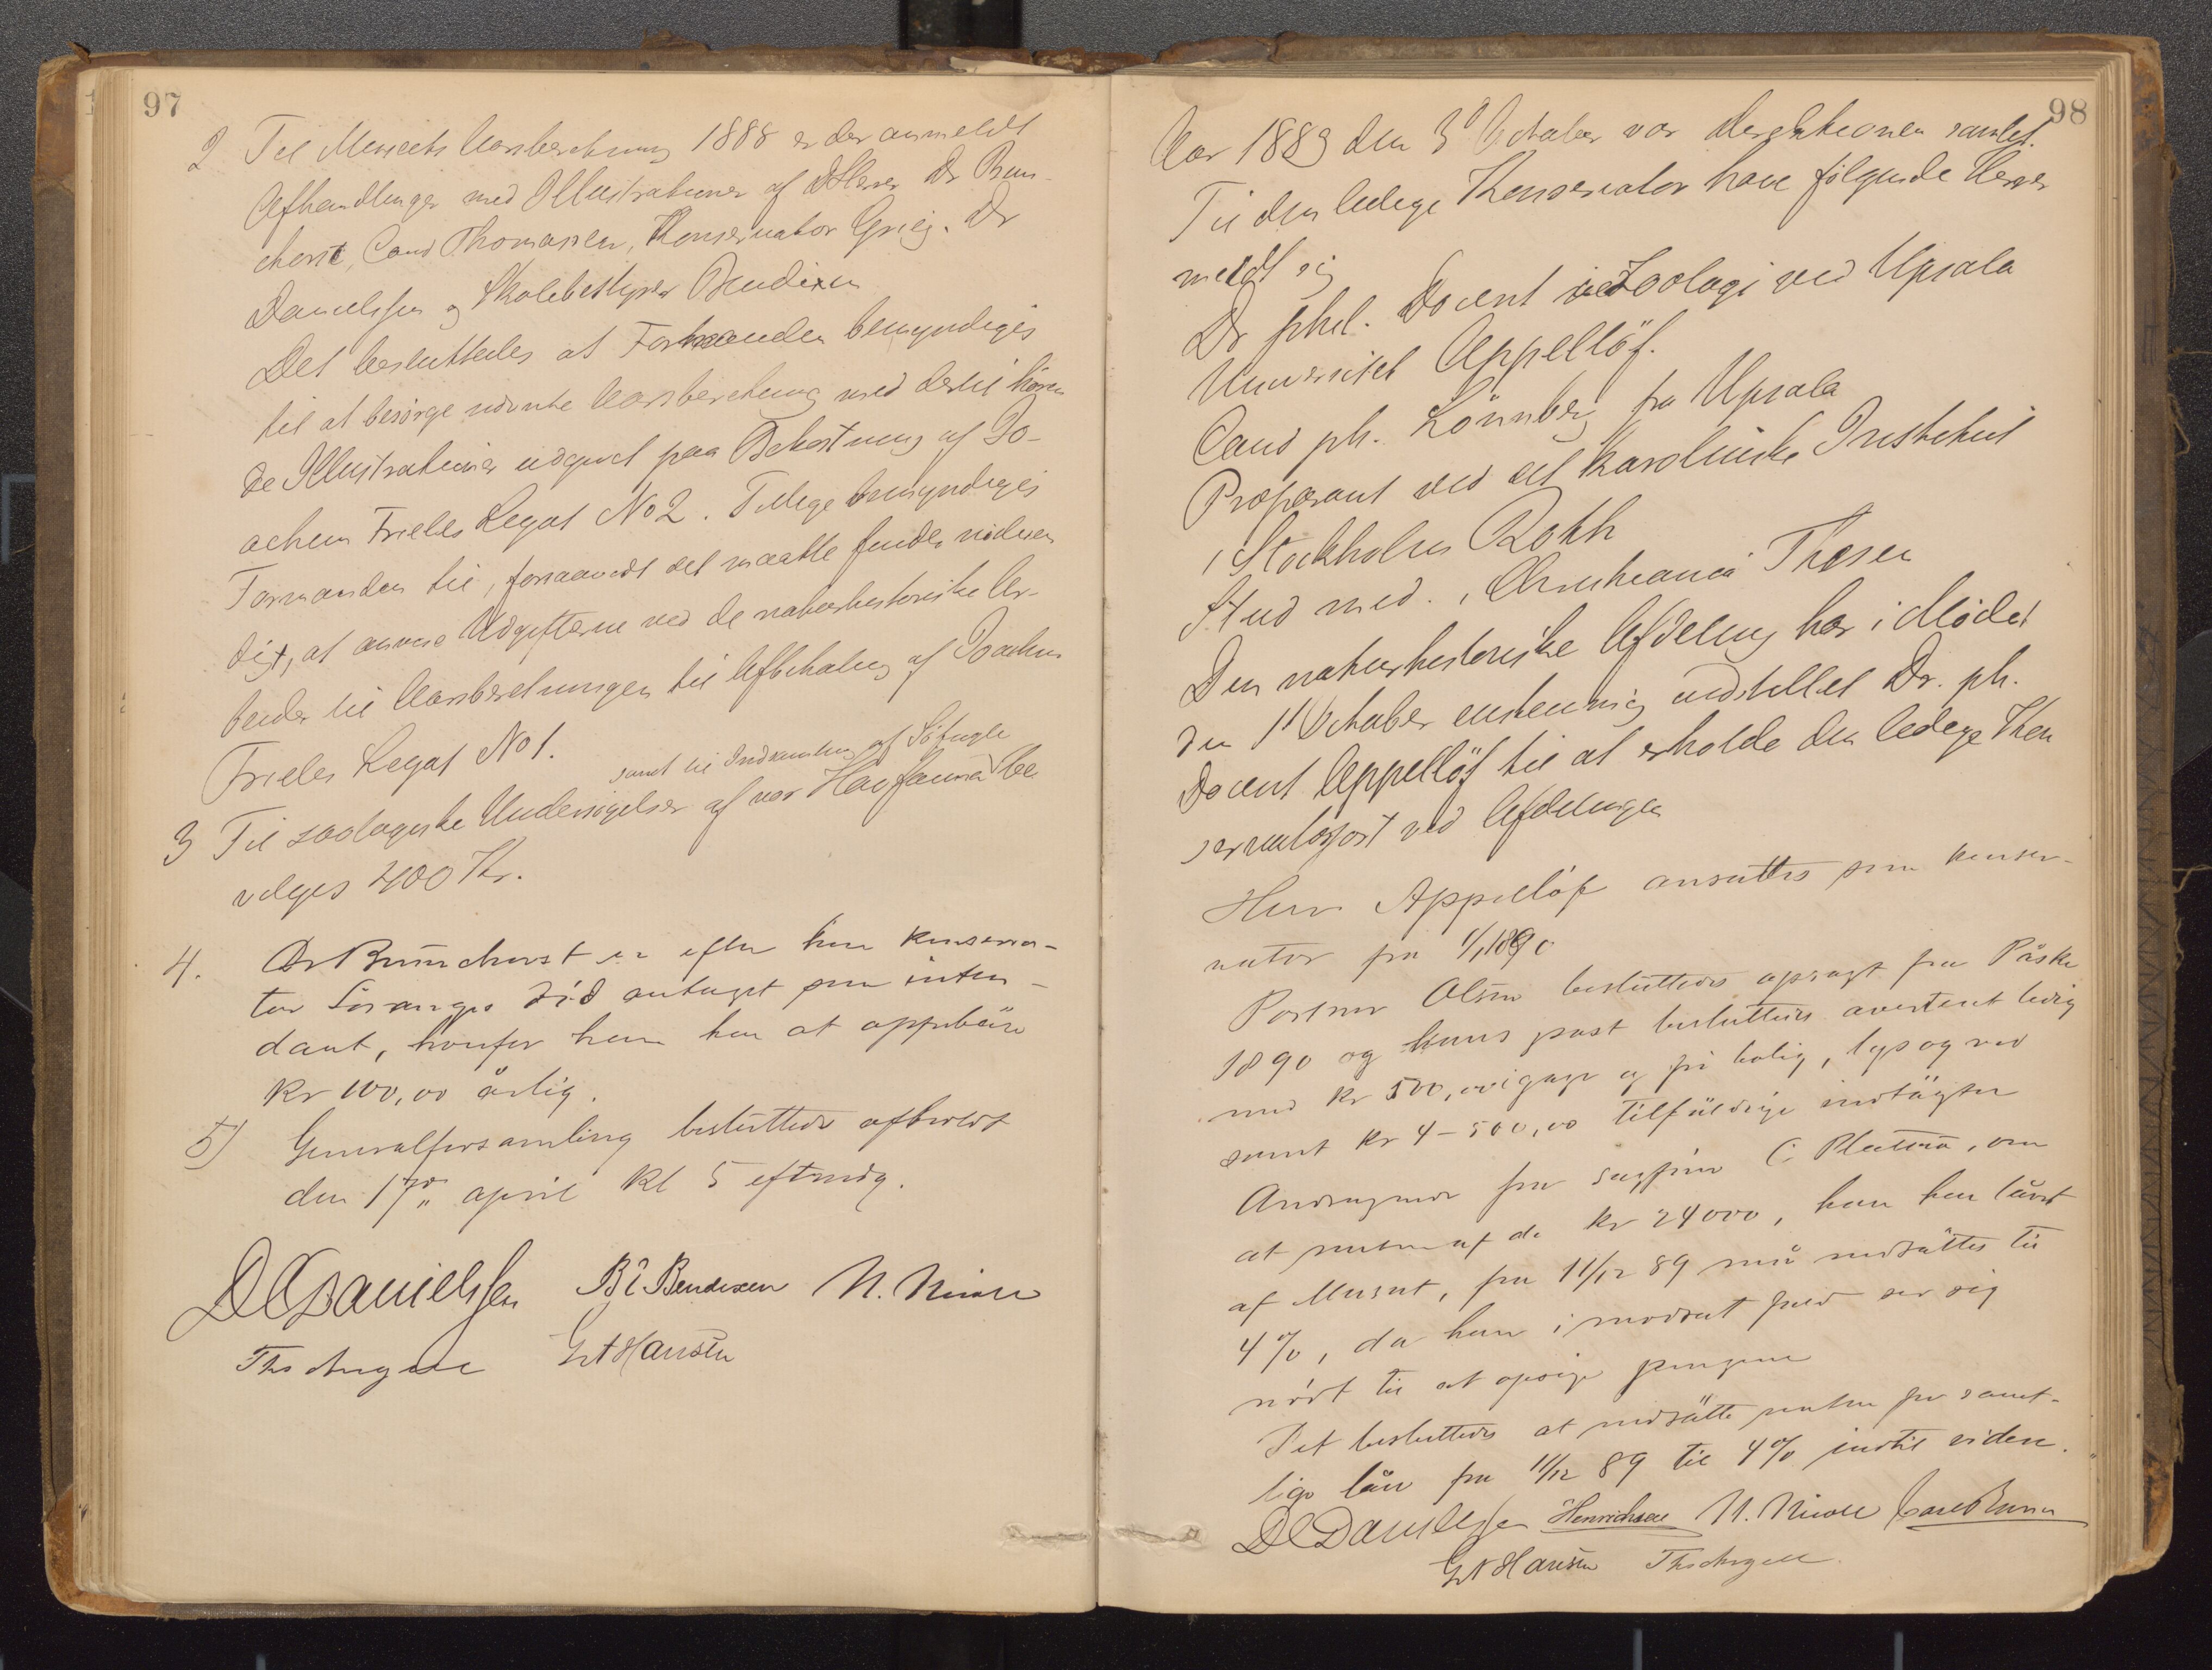 97
2 Til Museets Aarsberetning 1888 er der anmeldt
Afhandlinger med Illustrationer af DHerrer Dr Brun-
chorst, Cand Thomassen, Konservator Grieg. Dr
Danielssen og Skolebestyrer Bendixen
Det besluttedes at Formanden bemyndiges
til at besørge nævnte Aarsberetning med dertil høren
de Illustrationer udgivet paa Bekostning af Jo-
achim Frieles Legat No 2. Tillige bemyndiges
Formanden til, forsaavidt det maatte findes nødven
digt, at anvise Udgifterne ved de naturhistoriske Ar-
beider til Aarsberetningen til Afbetaling af Joachim
Frieles Legat No 1.
samt til Indsamling af Søfugle
3 Til zoologiske Undersøgelser af vor Havfauna be
vilges 400 Kr.
4. Dr Brunchorst er efter hr konserva-
tor Lorange død antaget som inten-
dant, hvorfor han har at oppebære
Kr 100,00 årlig.
5) Generalforsamling besluttedes afholdt
den 17de april kl 5 eftmdg.
DCDanielssen B E Bendixen N. Nicoll
Ths Angell G A Hansen
98
Aar 1889 den 3d October var Direktionen samlet.
Til den ledige Konservator have følgende Herrer
meldt sig
Dr phil. Docent i Zoologi ved Upsala
Universitet Appellöf.
Cand ph. Lönnberg fra Upsala
Preparant ved det Karolinske Institut
i Stockholm Roth
Stud med. i Christiania Thesen
Den naturhistoriske Afdeling har i Mødet
den 1st October enstemmig indstillet Dr. ph.
Docent Appellöf til at erholde den ledige Kon
servatorpost ved Afdelingen
Herr Appellöf ansattes som konser-
vator fra 1/1 1890
Portner Olsen besluttedes opsagt fra Påske
1890 og hans post besluttedes averteret ledig
med kr 500,00 i gage og fri bolig, lys og ved
samt kr 4-500,00 tilfældige indtægter
Andragende fra sagfører C. Platou, om
at renten af de kr 24000, han har lånt
af Museet, fra 11/12 89 må nedsættes til
4%, da han i modsat fald ser sig
nødt til at opsige pengene
Det besluttedes at nedsætte renten for samt-
lige lån fra 11/12 89 til 4% indtil videre.
DCDanielssen Henrichsen N. Nicoll
G A Hansen Ths Angell